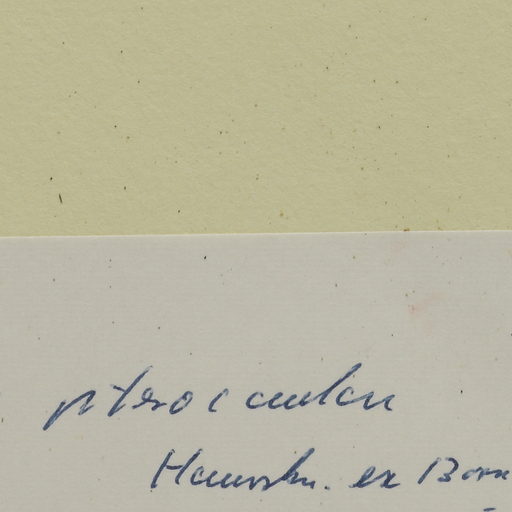 pterocaulon
Hausskn. ex Born